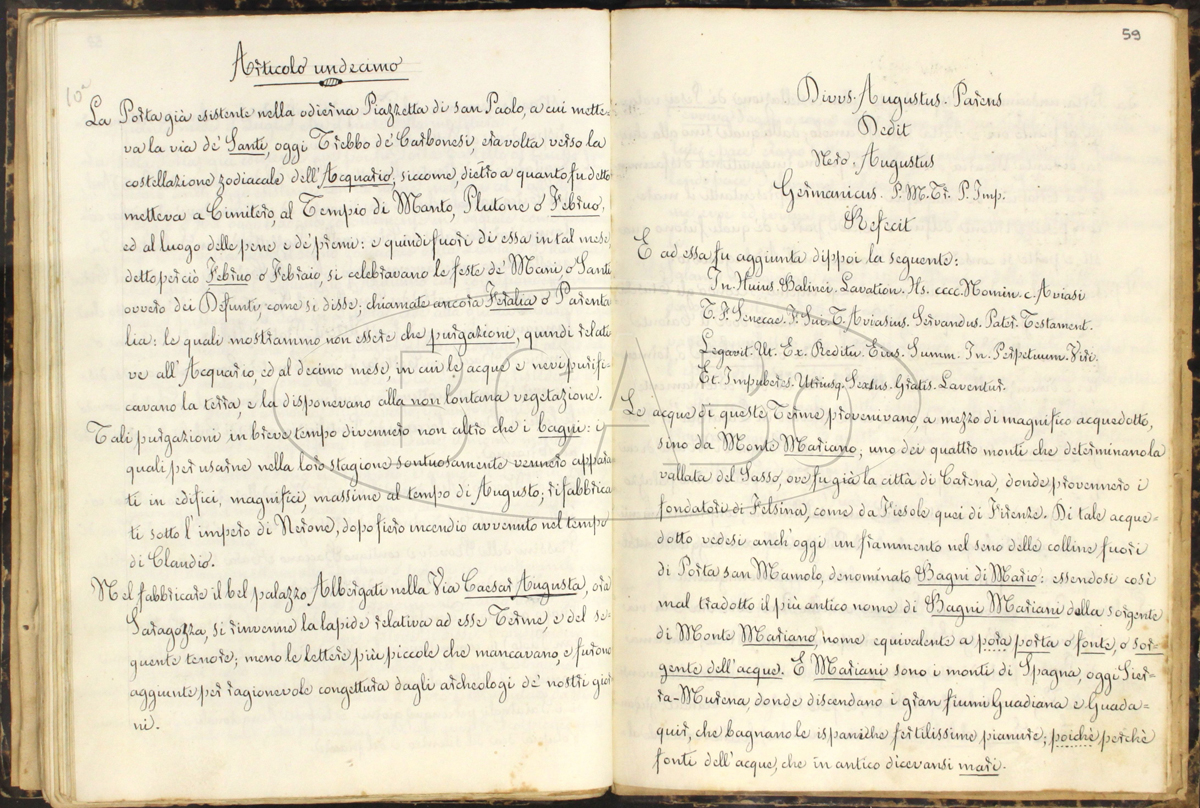 Articolo undecimo
10a
La Porta già esistente nella odierna Piazzetta di san Paolo, a cui mette-
va la via de' Santi, oggi Trebbo de' Carbonesi, era volta verso la
costellazione zodiacale dell'Acquario, siccome, dietro a quanto fu detto
metteva a Cimitero, al Tempio di Manto, Plutone o Februo,
ed al luogo delle pene e de' premi: e quindi fuori di essa in tal mese
detto perciò Februo o Febraio, si celebravano le feste de' Mani o Santi
ovvero dei Defunti, come si disse; chiamate ancora Feralia o Parenta
lia: le quali mostrammo non essere che purgazioni, quindi relati
ve all'Acquario, ed al decimo mese, in cui le acque e nevi purifi-
cavano la terra, e la disponevano alla non lontana vegetazione.
Tali purgazioni in breve tempo divennero non altro che i bagni: i
quali, per usarne nella loro stagione sontuosamente vennero appara
ti in edifici, magnifici, massime al tempo di Augusto; rifabbrica
ti sotto l'impero di Nerone, dopo fiero incendio avvenuto nel tempo
di Claudio.
Nel fabbricare il bel palazzo Albergati nella Via Caesar Augusta, ora
Saragozza, si rinvenne la lapide relativa ad esse Terme, e del se-
guente tenore; meno le lettere più piccole che mancavano, e furono
aggiunte per ragionevole congettura dagli archeologi de' nostri gior
ni.
59
Divvs. Augustus. Parens
Dedit
Nero. Augustus
Germanicus. P. M. Tr. P. Imp.
Refecit
E ad essa fu aggiunta dippoi la seguente:
In. Huius. Balinei. Lavation. Hs. cccc. Nomin. c. Aviasi
T. F. Senecae. F. Sui. T. Aviasius. Servandus. Pater. Testament.
Legavit. Ut. Ex. Reditu. Eius. Summ. In. Perpetuum. Viri.
Et. Impuberes. Utriusq. Sexsus. Gratis. Laventur.
Le acque di queste Terme provenivano, a mezzo di magnifico acquedotto,
sino da Monte Mariano, uno dei quattro monti che determinano la
vallata del Sasso, ove fu già la città di Carena, donde provennero i
fondatori di Felsina, come da Fiesole quei di Firenze. Di tale acque-
dotto vedesi anch'oggi un frammento nel seno delle colline fuori
di Porta san Mamolo, denominato Bagni di Mario: essendosi così
mal tradotto il più antico nome di Bagni Mariani dalla sorgente
di Monte Mariano, nome equivalente a pora porta o fonte, o sor-
gente dell'acque. E Mariani sono i monti di Spagna, oggi Sier-
ra-Murena, donde discendano i gran fiumi Guadiana e Guada-
quir, che bagnano le ispaniche fertilissime pianure; poichè perchè
fonti dell'acque, che in antico dicevansi mari.
BCABO